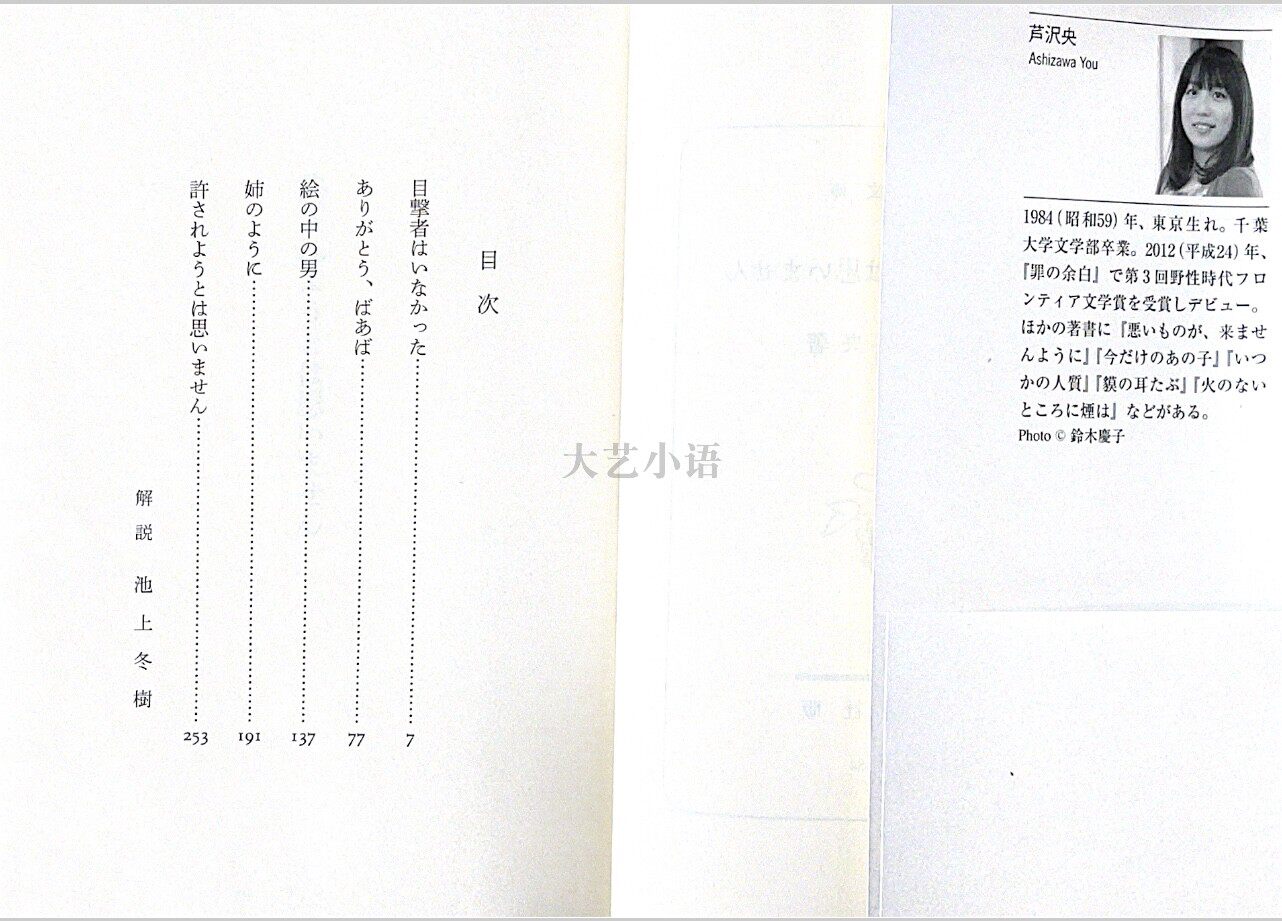 芦沢央
Ashizawa You
1984(昭和59)年、東京生れ。千葉
大学文学部卒業。2012(平成24)年、
『罪の余白』で第3回野性時代フロ
ンティア文学賞を受賞しデビュー。
ほかの著書に『悪いものが、来ませ
んように』『今だけのあの子』『いつ
かの人質』『貘の耳たぶ』『火のない
ところに煙は』などがある。
Photo © 鈴木慶子
目次
目撃者はいなかった……7
ありがとう、ばあば……77
絵の中の男……137
姉のように……191
許されようとは思いません……253
解説 池上冬樹
大艺小语